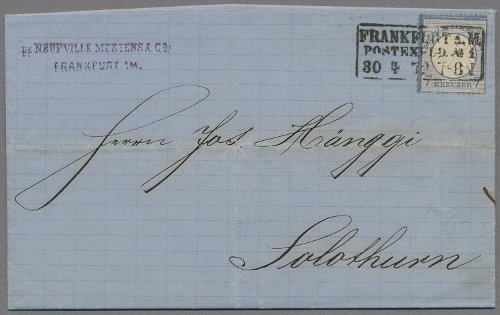 DE NEUFVILLE MERTENS & Co
FRANKFURT A/M.
FRANKFURT a. M.
POSTEXP. D. No 1
30 4 72 7-8 V
7 KREUZER 7
Herrn Jos. Hänggi
Solothurn